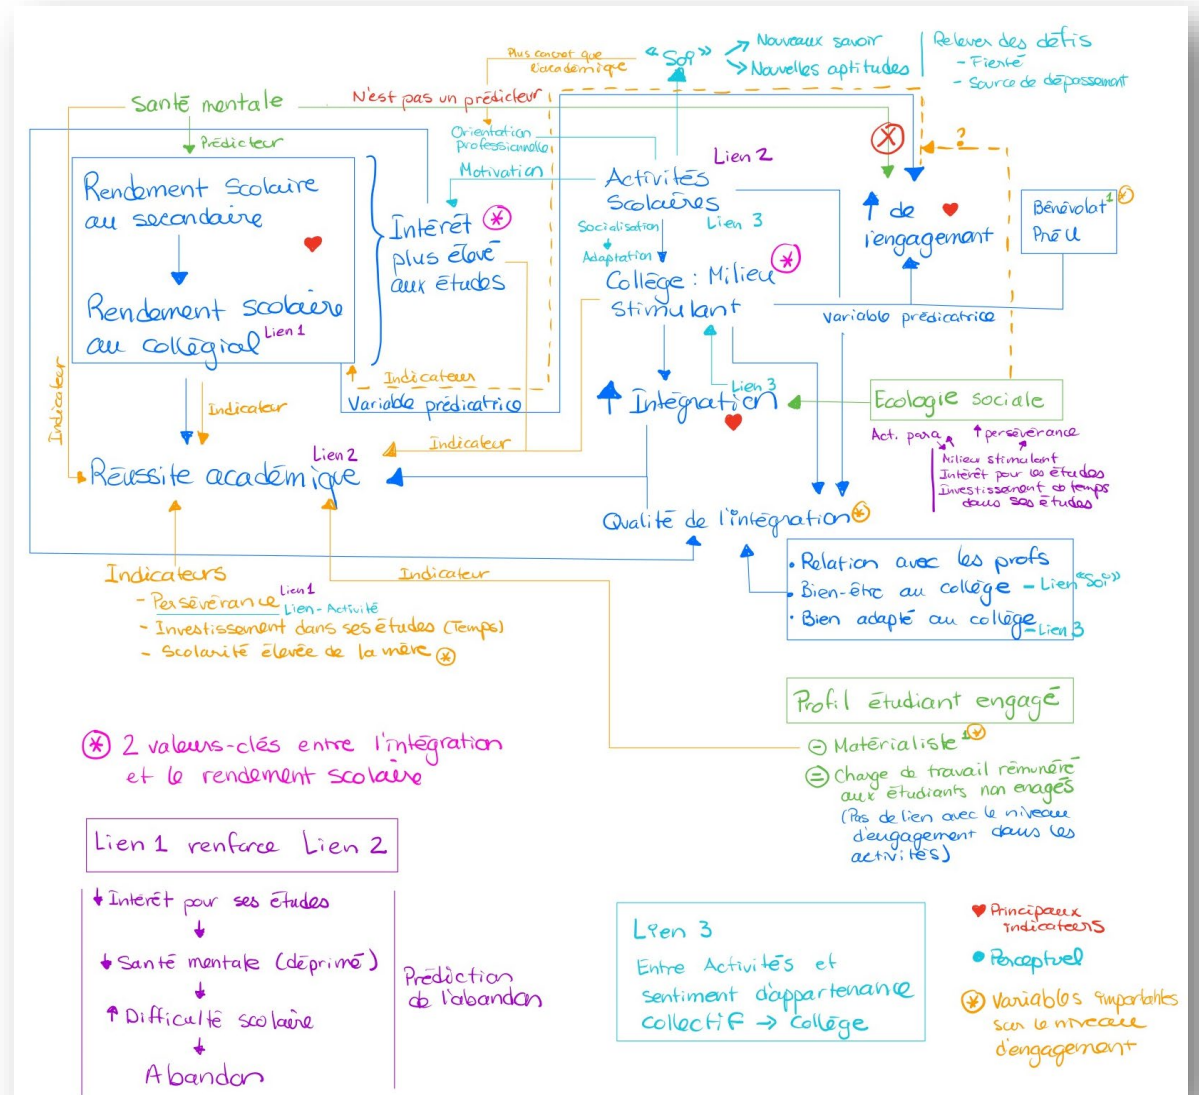 Plus concret que
l'académique
« Soi »
Nouveaux savoir
Nouvelles aptitudes
Relever des défis
- Fierté
- Source de dépassement
Santé mentale
N'est pas un prédicteur
Prédicteur
Orientation
professionnelle
Motivation
Lien 2
?
Rendement Scolaire
au secondaire
Rendement scolaire
au collégial
Lien 1
Intérêt
plus élevé
aux études
Activités
Scolaires
Lien 3
Socialisation
Adaptation
Collège : Milieu
Stimulant
↑ de
l'engagement
Bénévolat 1
Pré U
Variable prédicatrice
Indicateur
Indicateurs
Variable prédicatrice
Indicateur
Indicateur
Lien 3
↑ Intégration
Écologie sociale
Act. para
↑ persévérance
Milieu stimulant
Intérêt pour les études
Investissement de temps
dans ses études
Lien 2
Réussite académique
Qualité de l'intégration
• Relation avec les profs
• Bien-être au collège - Lien "Soi"
• Bien adapté au collège - Lien 3
Indicateurs
- Persévérance Lien 1
Lien-Activité
- Investissement dans ses études (Temps)
- Scolarité élevée de la mère
Indicateur
Profil étudiant engagé
- Matérialiste
= Charge de travail rémunéré
aux étudiants non enagés
(Pas de lien avec le niveau
d'eugagement dans les
activités)
* 2 valeurs-clés entre l'intégration
et le rendement scolaire
Lien 1 renforce Lien 2
↓ Intérêt pour ses études
↓ Santé mentale (déprimé)
↑ Difficulté scolaire
Abandon
Prédiction
de l'abandon
Lien 3
Entre Activités et
sentiment d'appartenance
collectif → collège
Principaux
indicateurs
Perceptuel
* Variables importantes
sur le niveau
d'engagement